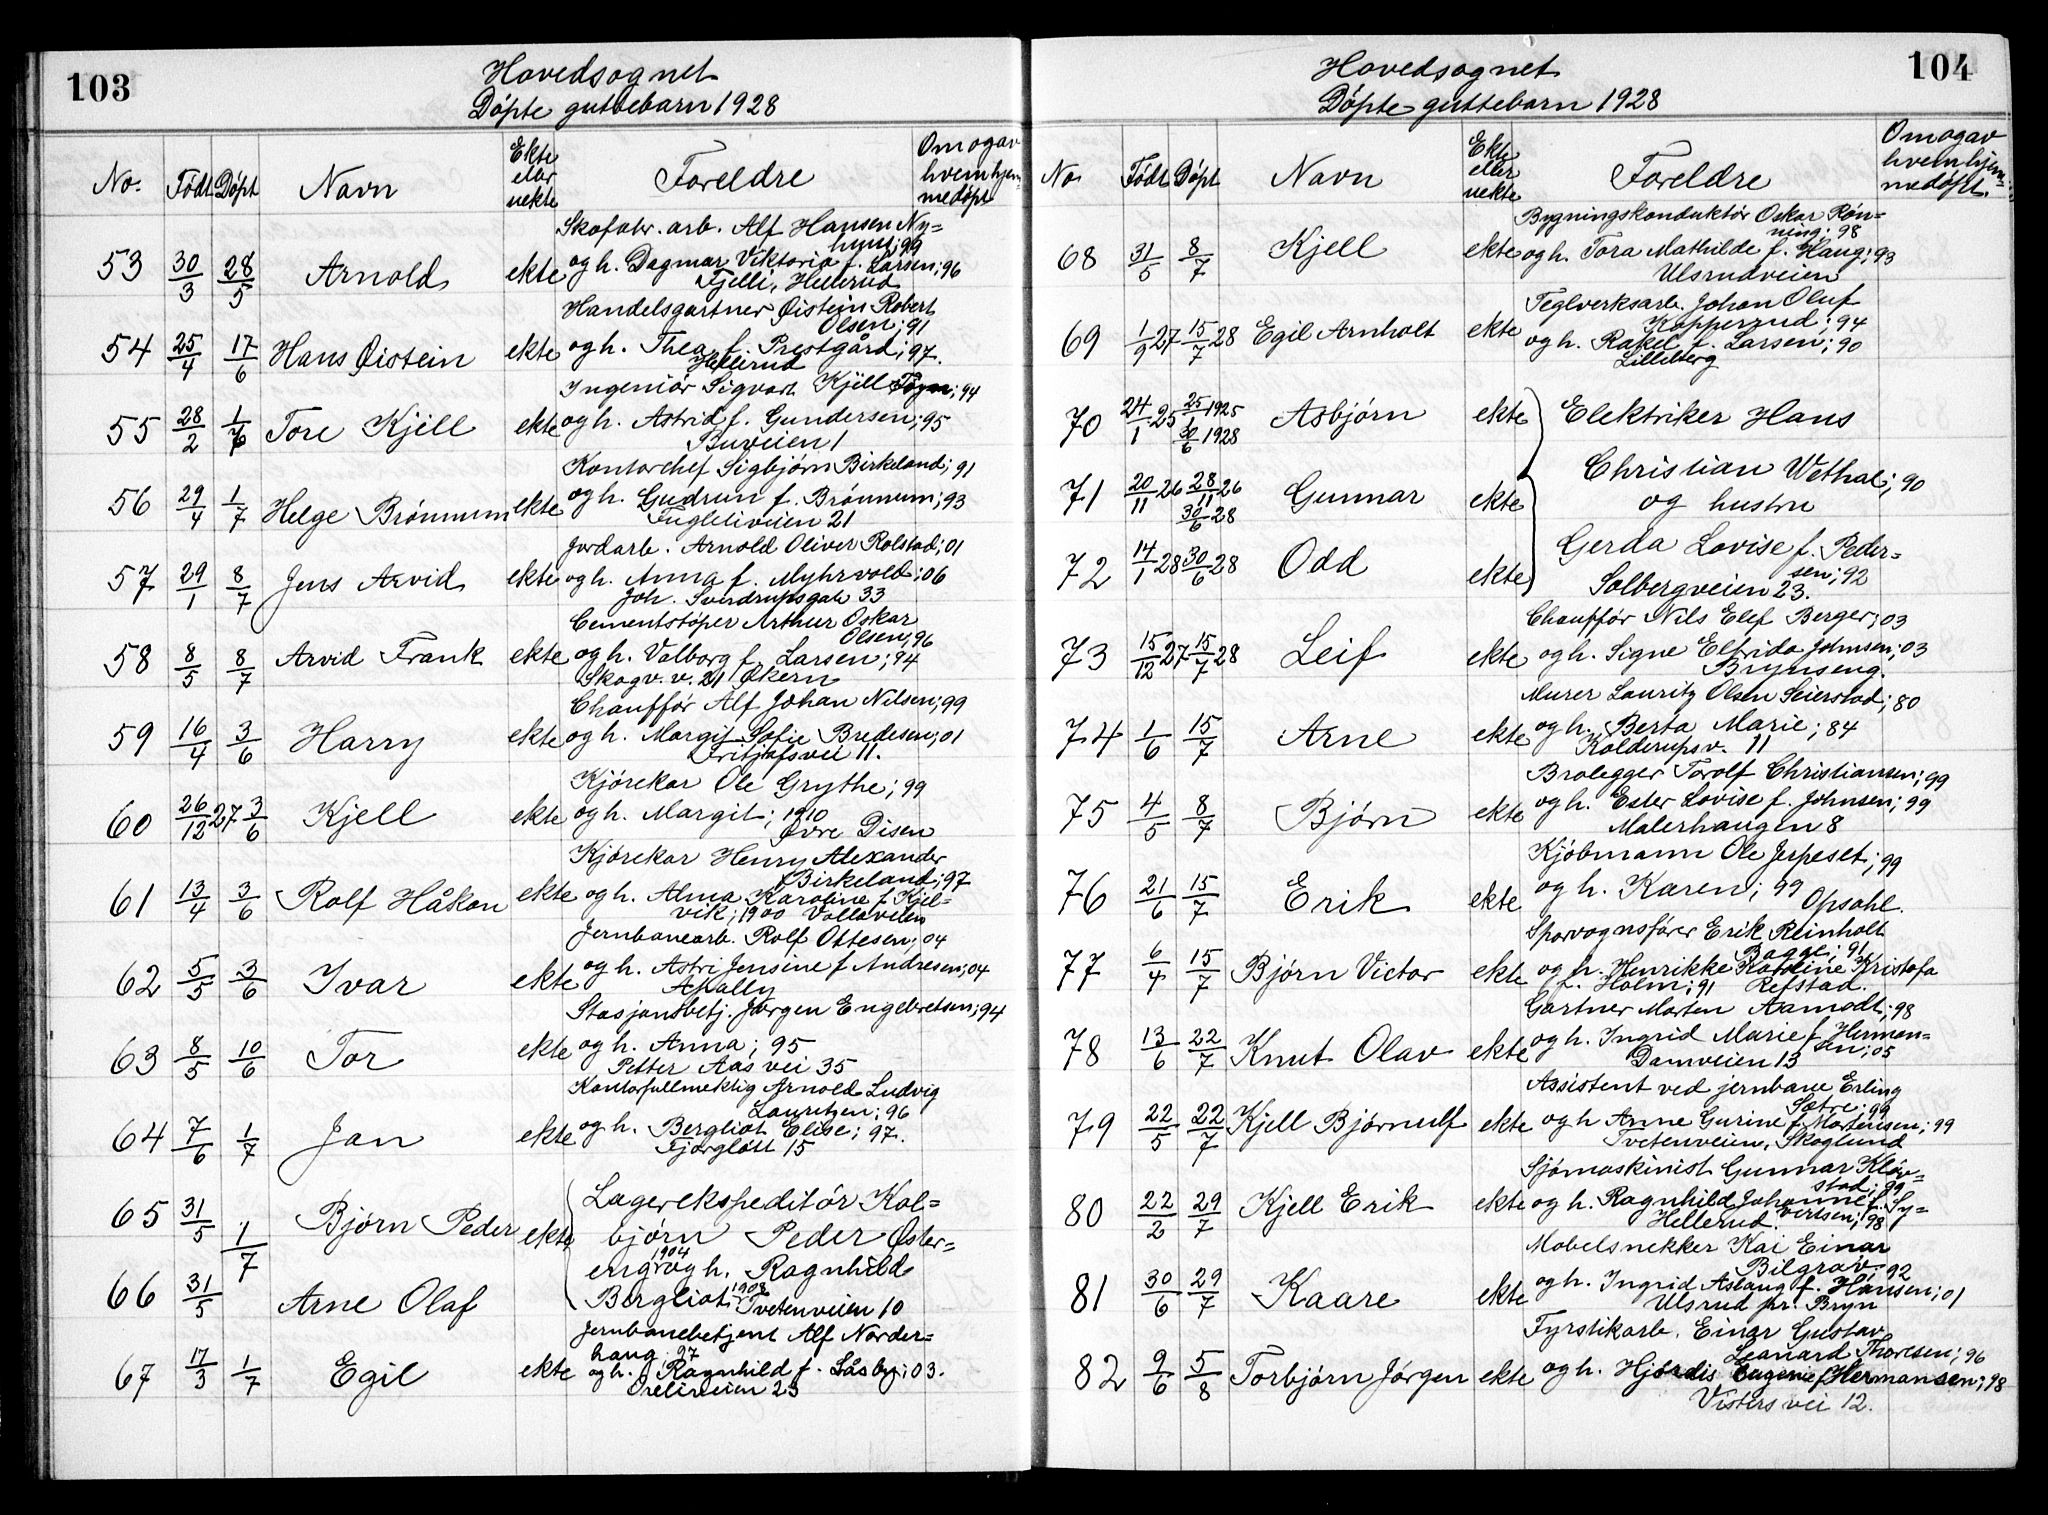 103
Hovedsognet
Døpte guttebarn 1928
No. Født Døpt Navn Ekte eller uekte Foreldre Om og av hvem hjemmedøpt
53 30/3 28/5 Arnold ekte Skofabr. arb. Alf Hansen Ny=
huus; 99
og h. Dagmar Viktoria f. Larsen; 96
Fjelli, Hellerud
54 25/4 17/6 Hans Øistein ekte Handelsgartner Øistein Robert
Olsen; 91
og h. Thea f. Prestgård; 97.
Hellerud
55 28/2 1/7 Tore Kjell ekte Ingeniør Sigvart Kjell; 94
og h. Astrid f. Gundersen; 95
Buveien 1
56 29/4 1/7 Helge Brønnum ekte Kontorchef Sigbjørn Birkeland; 91
og h. Gudrun f. Brønnum; 93
Fugleliveien 21
57 29/1 8/7 Jens Arvid ekte Jordarb. Arnold Oliver Rolstad; 01
og h. Anna f. Myhrvold; 06
Joh. Sverdrupsgate 33
58 8/5 8/7 Arvid Frank ekte Cementstøper Arthur Oskar
Olsen; 96
og h. Valborg f. Larsen; 94
Skogv. v. 21 Økern
59 16/4 3/6 Harry ekte Chauffør Alf Johan Nilsen; 99
og h. Margit Sofie Bredesen; 01
Fritjofsvei 11.
60 26/12 27 3/6 Kjell ekte Kjørekar Ole Grythe; 99
og h. Margit; 1910
Øvre Disen
61 13/4 3/6 Rolf Håkon ekte Kjørekar Henry Alexander
Birkeland; 97
og h. Alma Karoline f. Kjel=
vik; 1900 Vollaveien
62 5/5 3/6 Ivar ekte Jernbanearb. Rolf Ottesen; 04
og h. Astri Jensine f Andresen; 04
Abally
63 8/5 10/6 Tor ekte Stasjonsbetj. Jørgen Engebretsen; 94
og h. Anna; 95
Petter Aas vei 35
64 7/6 1/7 Jan ekte Kontorfullmektig Arnold Ludvig
Lauritzen; 96
og h. Bergliot Elise; 97.
Fjorgløtt 15
65 31/5 1/7 Bjørn Peder ekte Lagerekspeditør Kol=
bjørn Peder Øster=
eng 1904 og h. Ragnhild
66 31/5 Arne Olaf Bergliot; 1908 Tvetenveien 10
67 17/3 1/7 Egil ekte Jernbanebetjent Alf Norder=
haug; 97
og h. Ragnhild f. Låsby; 03.
Oreliveien 23
104
Hovedsognet
Døpte guttebarn 1928
No Født Døpt Navn Ekte eller uekte Foreldre Om og av hvem hjem=medøpt.
68 31/5 8/7 Kjell ekte Bygningskonduktør Oskar Røn=
ning; 98
og h. Tora Mathilde f. Haug; 93
Ulsrudveien
69 1/9 27 15/7 28 Egil Arnholt ekte Teglverksarb. Johan Oluf
Kopperud; 94
og h. Rakel f. Larsen; 90
Lilleberg
70 24/1 25 25/1 1925 30/6 1928 Asbjørn ekte Elektriker Hans
71 20/11 26 28/11 26 30/6 28 Gunnar ekte Christian Wethal; 90
og hustru
72 14/1 28 30/6 28 Odd ekte Gerda Lovise f. Peder=
sen; 92
Solbergveien 23.
73 15/12 27 15/7 28 Leif ekte Chauffør Nils Elef Berger; 03
og h. Signe Elfrida Johnsen; 03
Brynseng.
74 1/6 15/7 Arne ekte Murer Lauritz Olsen Seierstad; 80
og h. Berta Marie; 84
Kolderupsv. 11
75 4/5 8/7 Bjørn ekte Brolegger Torolf Christiansen; 99
og h. Ester Lovise f. Johnsen; 99
Malerhaugen 8
76 21/6 15/7 Erik ekte Kjøbmann Ole Jerpeset; 99
og h. Karen; 99 Opsahl.
77 6/4 15/7 Bjørn Victor ekte Sporvognsfører Erik Reinholt
Bagge; 91
og h. Henrikke Karoline Kristofa
f. Holm; 91 Refstad.
78 13/6 22/7 Knut Olav ekte Gartner Morten Aamodt; 98
og h. Ingrid Marie f. Herman=
sen; 05
Damveien 13
79 22/5 22/7 Kjell Bjørnulf ekte Assistent ved jernbane Erling
Sætre; 99
og h Anne Gurine f. Mortensen; 99
Tvetenveien, Skoglund
80 22/2 29/7 Kjell Erik ekte Sjømaskinist Gunnar Kløv=
stad; 99
og h. Ragnhild Johanne f. Sy=
vertsen; 98
Hellerud.
81 30/6 29/7 Kaare ekte Møbelsnekker Kai Einar
Bilgrav. 92
og h. Ingrid Aslaug f. Hansen; 01
Ulsrud pr. Bryn
82 9/6 5/8 Torbjørn Jørgen ekte Fyrstikarb. Einar Gustav
Leonard Thoresen; 96
og h. Hjørdis Eugenie f Hermansen; 98
Visters vei 12.